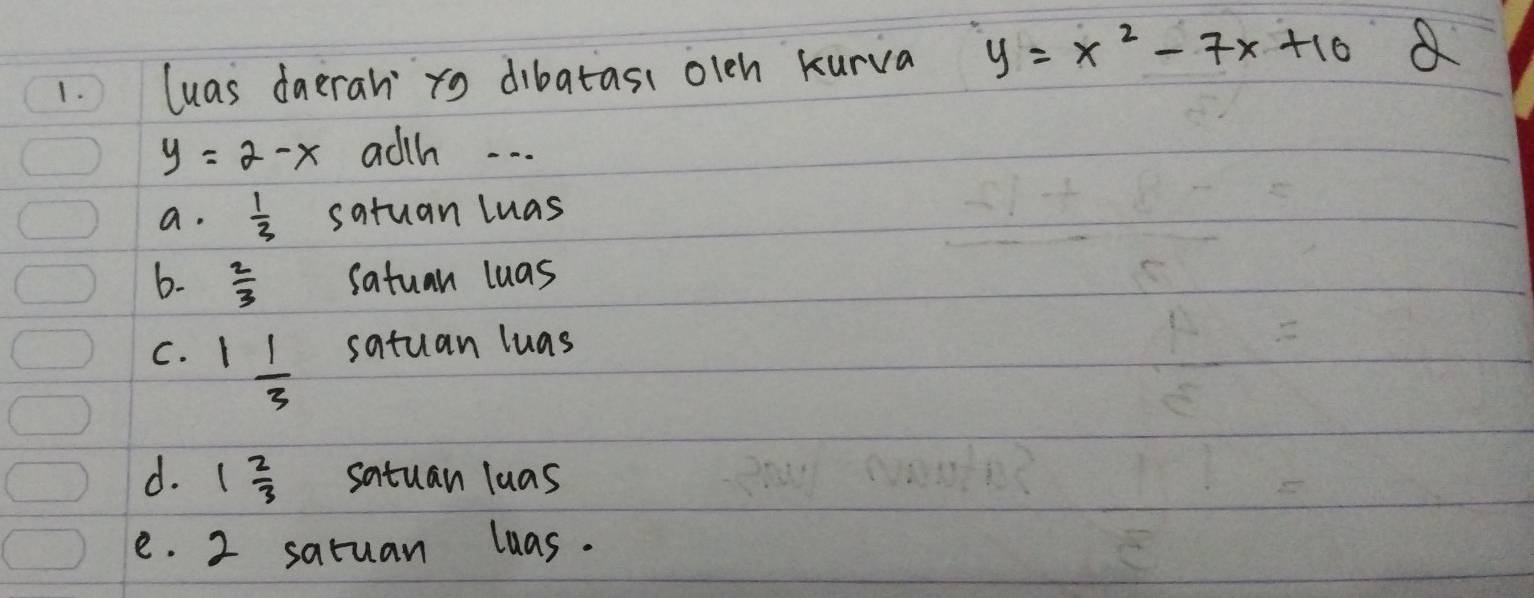 1. luas daerah yg dibatasi oleh kurva y = x² - 7x + 10 &
y = 2 - x adlh ...
a. 1/3 satuan luas
b. 2/3 satuan luas
c. 1 1/3 satuan luas
d. 1 2/3 satuan luas
e. 2 satuan luas.